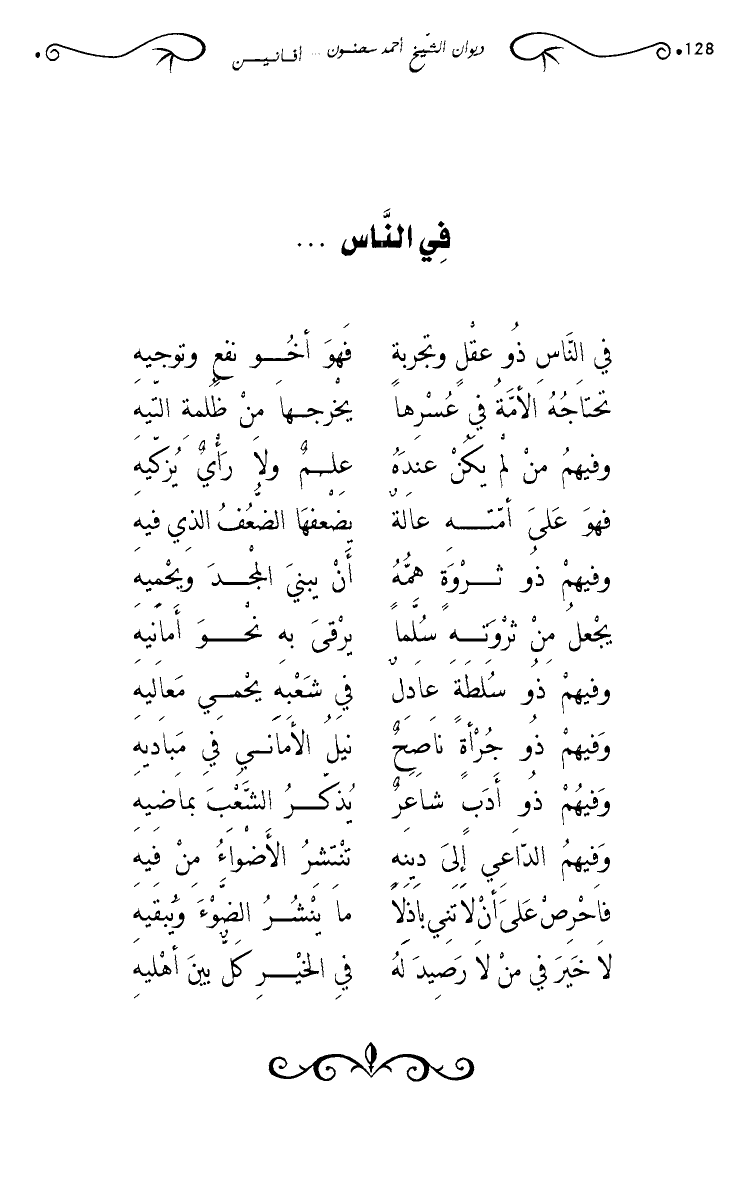 128 ديوان الشيخ أحمد سحنون ... أفانيـــن
فِي النَّاس ...
في النَّاسِ ذُو عقْلٍ وتجربة فَهوَ أخُـــو نفعٍ وتوجيهِ
تحتاجُهُ الأمَّةُ في عُسْرِها يخْرجـــها منْ ظُلمةِ التّيهِ
وفيهمُ منْ لمْ يكُنْ عندَهُ علـــمٌ ولا رَأْيٌ يُزكّيهِ
فهوَ عَلىَ أمّتـــه عالةٌ يضْعفهَا الضعُفُ الذي فيهِ
وفيهمْ ذُو ثـــرْوَةٍ همُّهُ أَنْ يبنيَ المجْـــدَ ويحْميهِ
يجْعلُ منْ ثرْوَتـــهِ سُلَّماً يرْقىَ بهِ نحْـــوَ أَمانيهِ
وفيهمْ ذُو سُلطَةٍ عادلٌ في شَعْبهِ يحْمـــي مَعاليهِ
وَفيهمْ ذُو جُرْأةٍ ناصِحٌ نيلُ الأمانـــي في مَباديهِ
وَفيهُمْ ذُو أَدَبٍ شاعرٌ يُذكّـــرُ الشَّعْبَ بماضيهِ
وَفيهمُ الدّاعي إلىَ دينهِ تنْتشرُ الأَضْواءُ مِنْ فيهِ
فاحْرِصْ عَلىَ أنْ لا تني باذِلاً ما ينْشُـــرُ الضوْءَ وَيُبقيهِ
لا خَيَرَ في منْ لا رَصيدَ لهُ في الخيْـــرِ كلٌّ بينَ أهْليهِ